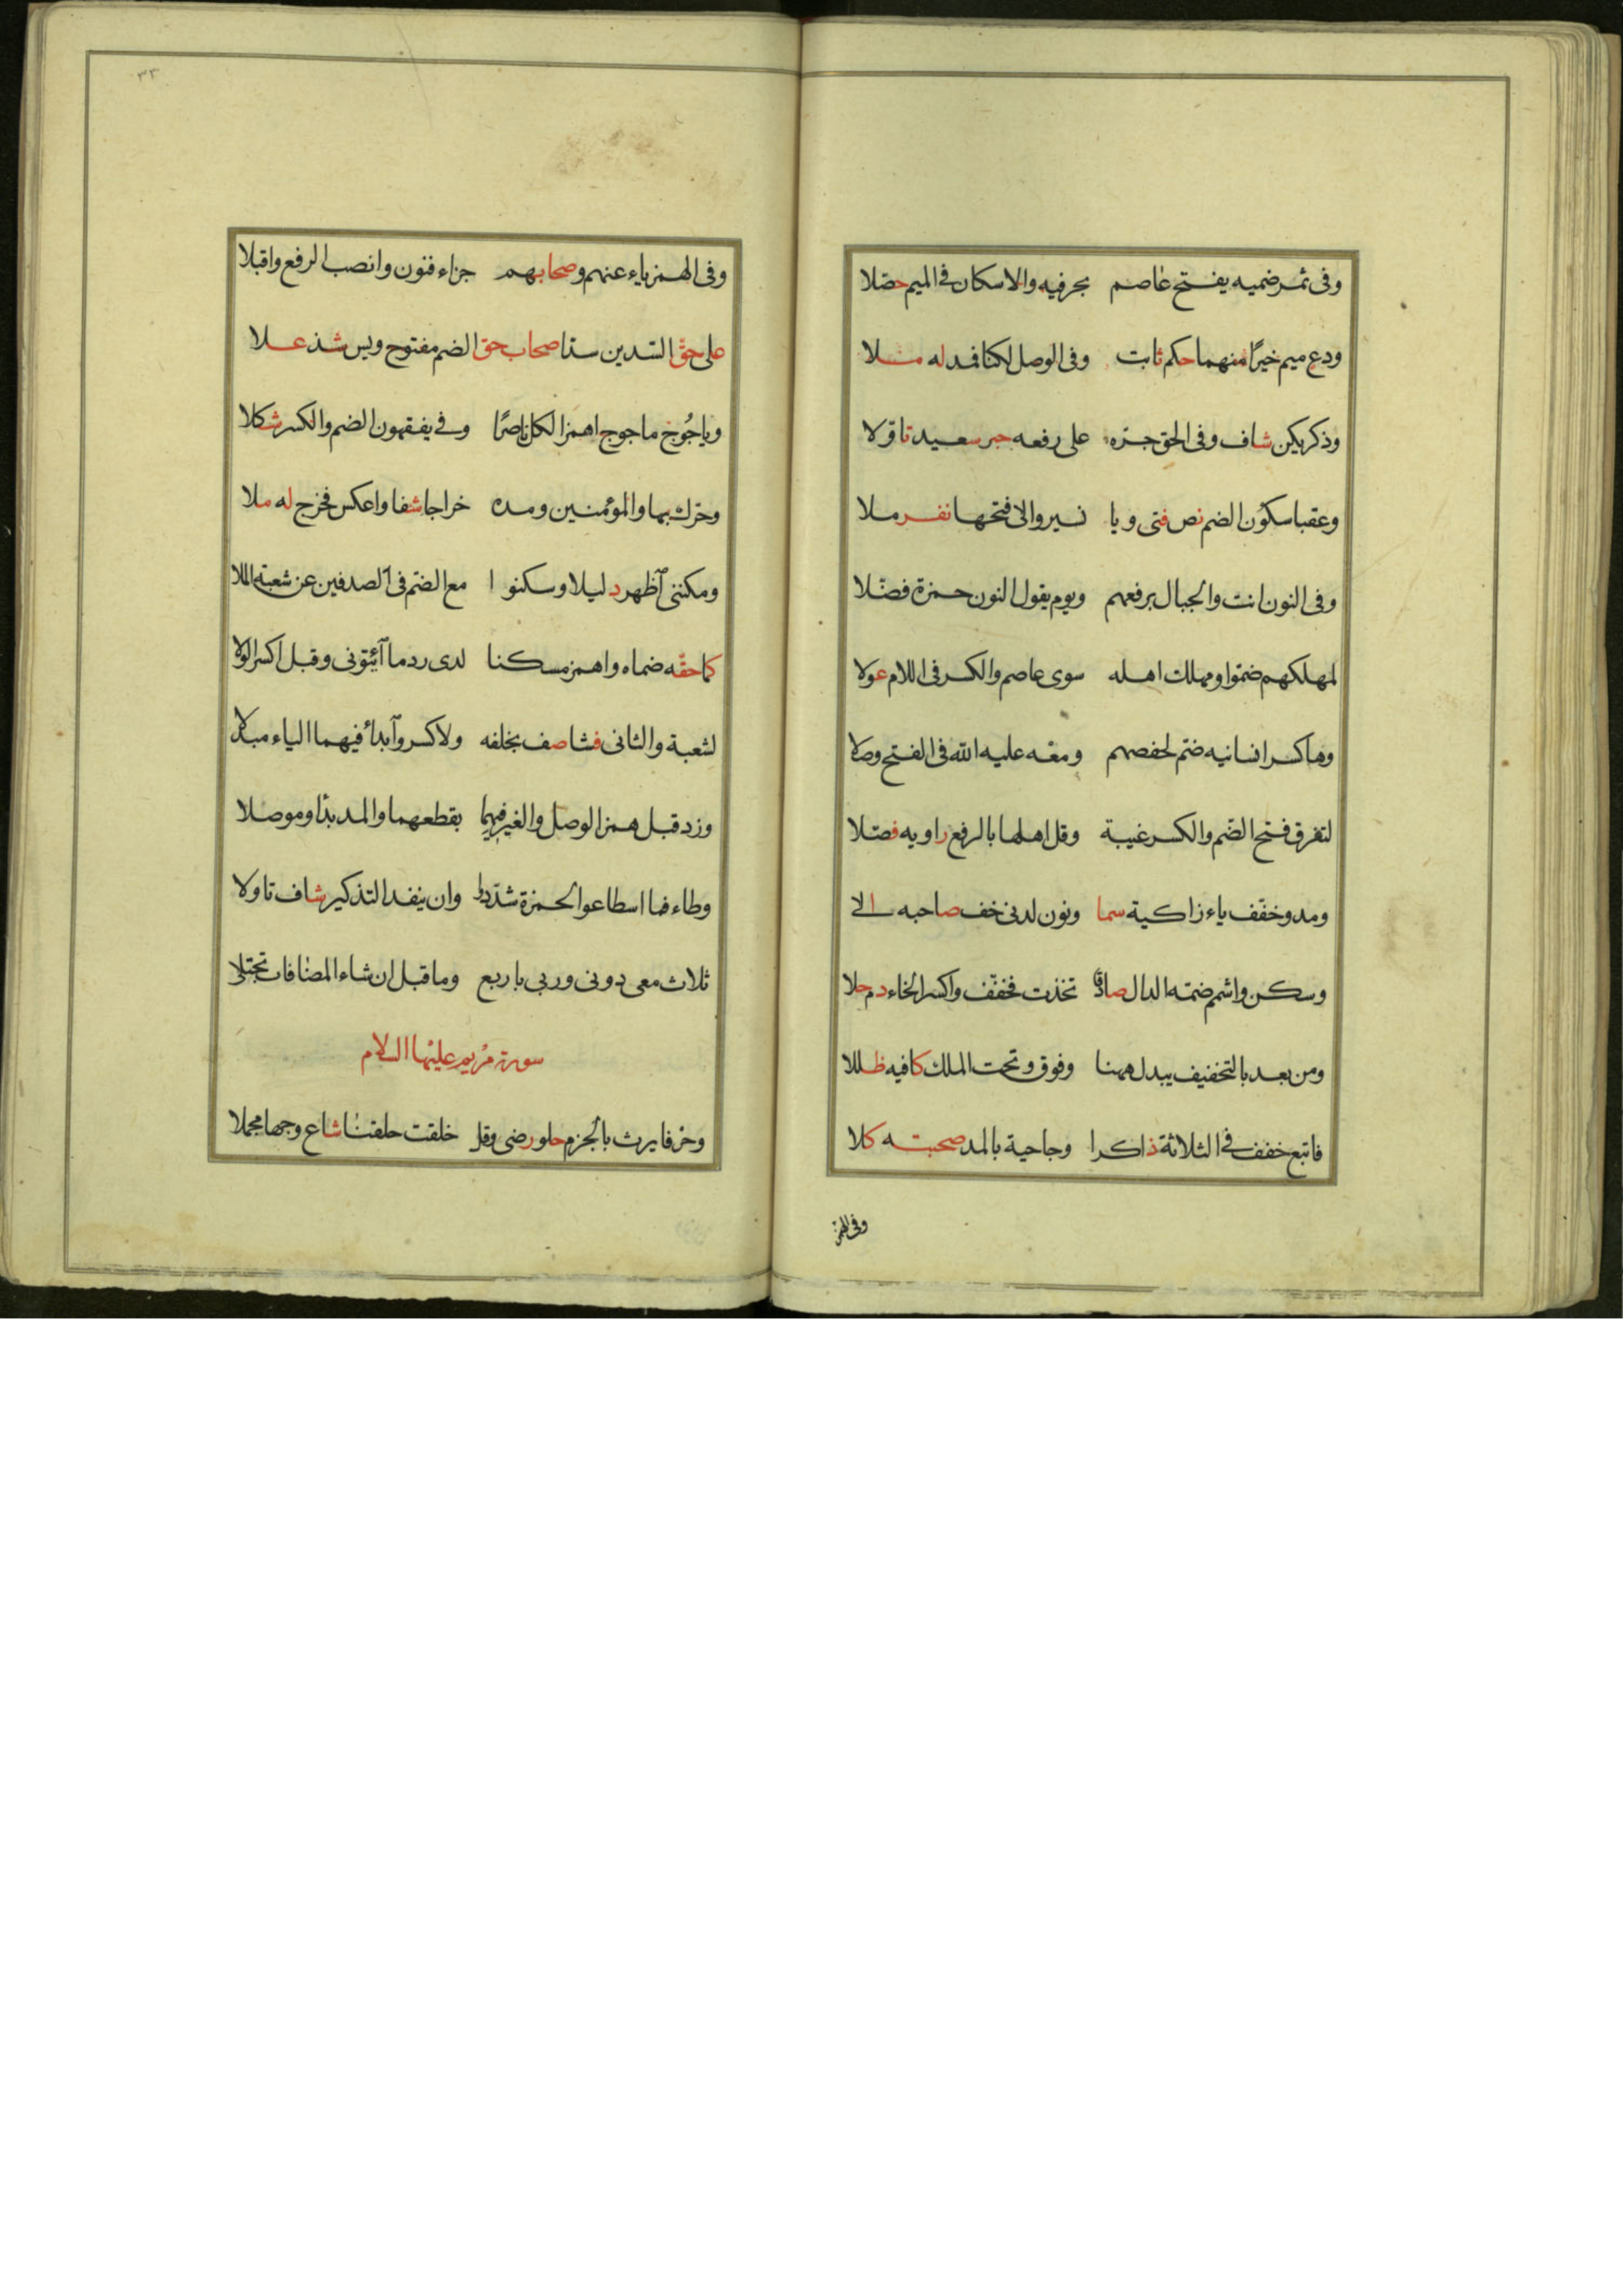 وفى ثمر ضميه يفتح عاصم بحرفيه والاسكان فى الميم حصلا
ودع ميم خيرًا منهما حكم ثابت وفى الوصل لكنا فمد له ملا
وذكر يكن شاف وفى الحق جره على رفعه حبر سعيد تاولا
وعقبا سكون الضم نص فتى ويا نسير والى فتحها نفر ملا
وفى النون انث والجبال برفعهم ويوم يقول النون حمزة فضلا
لمهلكهم ضموا ومهلك اهله سوى عاصم والكسر فى اللام عولا
وها كسر انسانيه ضم لحفصهم ومعه عليه الله فى الفتح وصلا
لتغرق فتح الضم والكسر غيبة وقل اهلها بالرفع راويه فصلا
ومد وخفف ياء زاكية سما ونون لدنى خف صاحبه الى
وسكن واشمم ضمة الدال صادقا تخذت فخفف واكسر الخاء دم حلا
ومن بعد بالتخفيف يبدل ههنا وفوق وتحت الملك كافيه ظللا
فاتبع خفف فى الثلاثة ذاكرا وحامية بالمد صحبته كلا
وفى الهمز
٣٣
وفى الهمز ياء عنهم وصحابهم جزاء فنون وانصب الرفع واقبلا
على حق السدين سدا صحاب حق الضم مفتوح ويس شذ علا
وياجوج ماجوج اهمز الكل ناصرًا وفى يفقهون الضم والكسر شكلا
وحرك بها والمؤمنين ومده خراجا شفا واعكس فخرج له ملا
ومكننى اظهر دليلا وسكنوا مع الضم فى الصدفين عن شعبة الملا
كما حقه ضماه واهمز مسكنا لدى ردما آئتونى وقبل اكسر الولا
لشعبة والثانى فشا صف بخلفه ولا كسر وآبدأ فيهما الياء مبدلا
وزد قبل همز الوصل والغير فيهما بقطعهما والمد بدأ وموصلا
وطاء فما اسطاعوا لحمزة شددوا وان ينفد التذكير شاف تاولا
ثلاث معى دونى وربى باربع وما قبل ان شاء المضافات تجتلى
سورة مريم عليها السلام
وحرفا يرث بالجزم حلو رضى وقل خلقت خلقنا شاع وجها مجملا